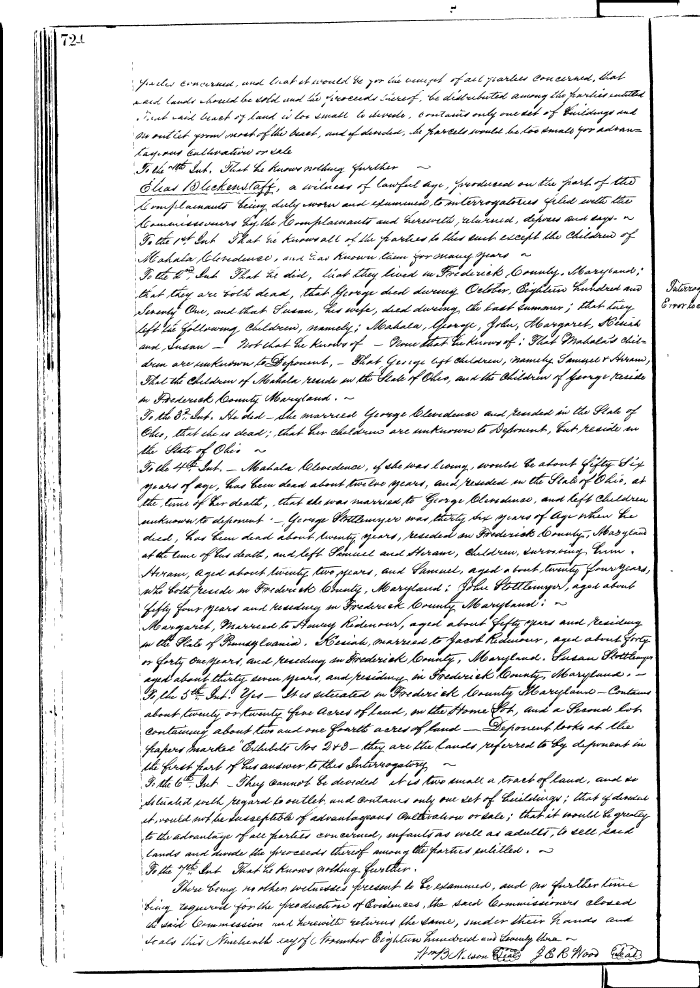 724
parties concerned, and that it would be for the benefit of all parties concerned, that
said lands should be sold and the proceeds thereof, be distributed among the parties entitled
that said tract of land is too small to divide, contains only one set of buildings and
no outlet from most of the tract, and if divided, the parcels would be too small for advan-
tageous cultivation or sale
To the 7th Int. That he knows nothing further ~
Elias Blickenstaff, a witness of lawful age, produced on the part of the
Complainants being duly sworn and examined to interrogatories filed with the
Commissioners by the Complainants and herewith, returned, deposes and says. ~
To the 1st Int That he knows all of the parties to this suit except the Children of
Mahala Clevidence, and has known them for many years ~
To the 2nd Int. That he did, that they lived in Frederick County, Maryland;
that they are both dead, that George died during October, Eighteen hundred and
Seventy One, and that Susan, his wife, died during the last summer; that they
left the following children, namely; Mahala, George, John, Margaret, Kesiah
and, Susan – Not that he knows of – None that he knows of; That Mahala's chil-
dren are unknown to Deponent, – That George left children, namely Samuel & Hiram,
That the Children of Mahala reside in the State of Ohio, and the Children of George reside
in Frederick County Maryland. ~
To the 3d. Int. He did – she married George Clevidence and resided in the State of
Ohio, that she is dead; that her children are unknown to Deponent, but reside in
the State of Ohio ~
To the 4th Int. – Mahala Clevidence, if she was living, would be about fifty six
years of age, has been dead about twelve years, and resided in the State of Ohio, at
the time of her death, that she was married to George Clevidence, and left children
unknown to deponent – George Stottlemyer was thirty six years of Age when he
died, has been dead about twenty years, resided in Frederick County, Maryland
at the time of his death, and left Samuel and Hiram, children, surviving him.
Hiram, aged about twenty two years, and Samuel, aged about, twenty four years,
who both, reside in Frederick County, Maryland; John Stottlemyer, aged about
fifty four years and residing in Frederick County, Maryland; ~
Margaret, Married to Henry Ridenour, aged about fifty years and residing
in the State of Pennsylvania. Kesiah, married to Jacob Ridenour, aged about forty
or forty one years, and residing in Frederick County, Maryland. Susan Stottlemyer
aged about thirty seven years, and residing in Frederick County, Maryland. –
To, the 5th Int. Yes – It is situated in Frederick County Maryland – Contains
about twenty or twenty five Acres of land, in the Home Lot, and a Second lot
containing about two and one fourth acres of land – Deponent looks at the
papers marked "Exhibits Nos 2 & 3 – they are the lands referred to by deponent in
the first part of his answer to this Interrogatory ~
To the 6th Int – They cannot be divided it is two small a tract of land, and so
situated with regard to outlet, and contains only one set of buildings; that if divided
it, would not be susceptible of advantageous Cultivation or sale; that it would be greatly
to the advantage of all parties concerned, infants as well as adults, to sell said
lands and divide the proceeds thereof among the parties entitled. ~
To the 7th Int That he knows nothing further.
There being no other witnesses present to be examined, and no further time
being required for the production of Evidences, the said Commissioners closed
the said Commission and herewith returns the same, under their hands and
seals this Nineteenth day of November Eighteen hundred and Seventy three ~
Wm B Nelson (Seal) J E R Wood (Seal)
Interrog